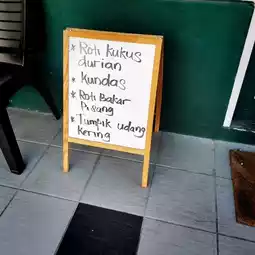 * Roti kukus
durian
* Kundas
* Roti Bakar
Pisang
* Tumpik udang
kering